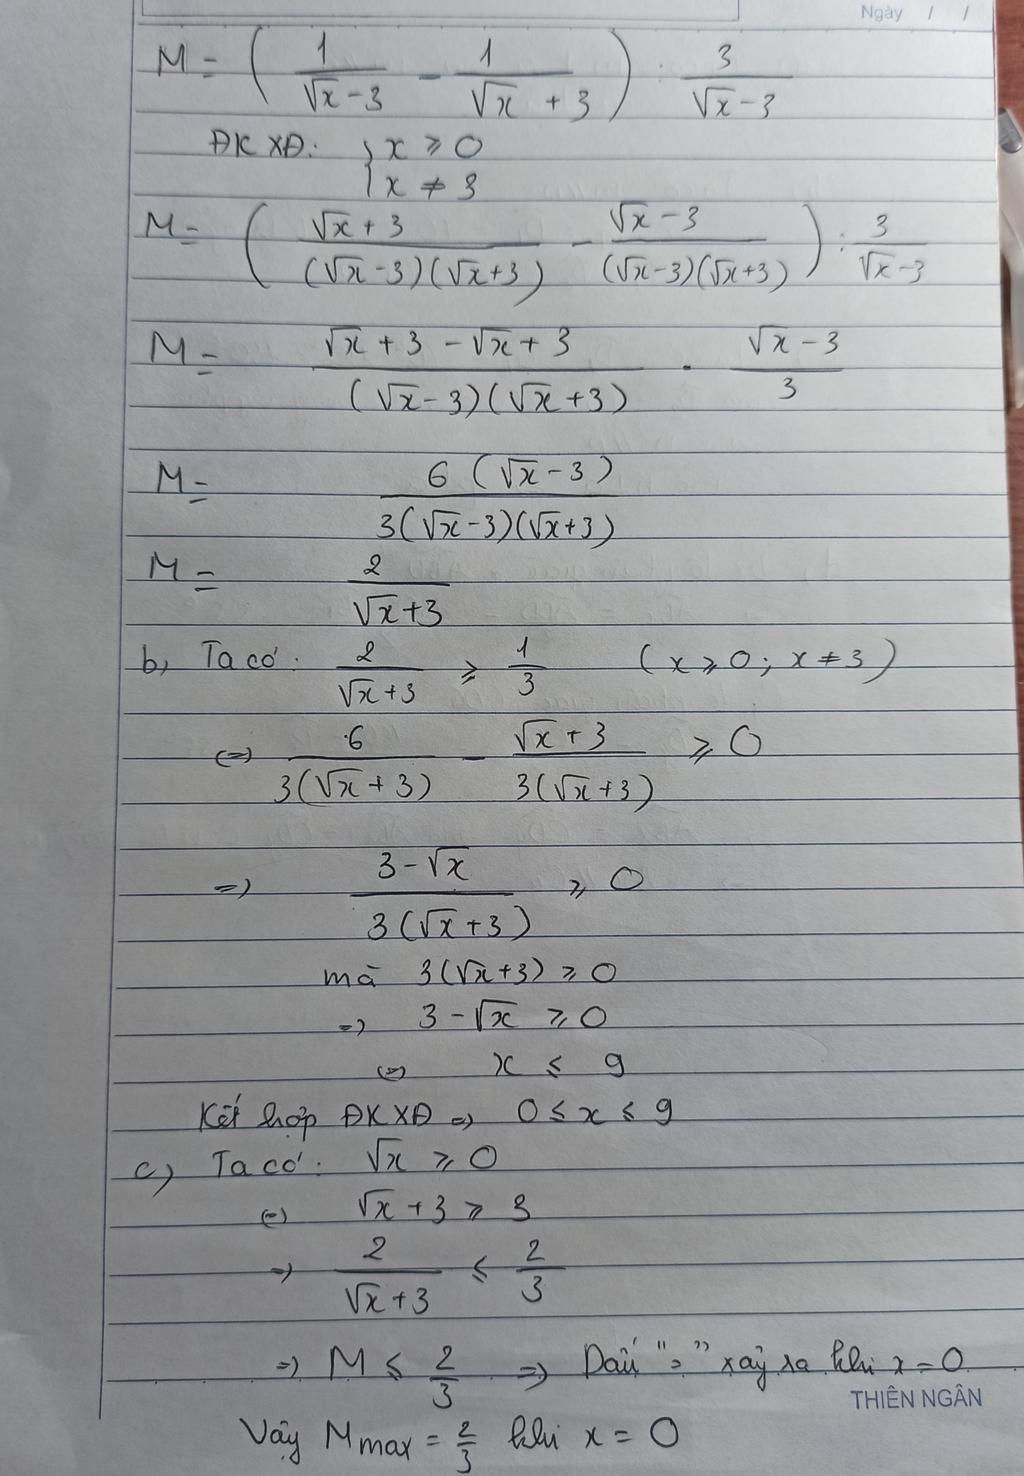 Ngày / /
M = ( 1/(√x - 3) - 1/(√x + 3) ) : 3/(√x - 3)
ĐKXĐ: { x ≥ 0
x ≠ 3
M = ( (√x + 3)/((√x - 3)(√x + 3)) - (√x - 3)/((√x - 3)(√x + 3)) ) : 3/(√x - 3)
M = (√x + 3 - √x + 3)/((√x - 3)(√x + 3)) . (√x - 3)/3
M = 6(√x - 3)/(3(√x - 3)(√x + 3))
M = 2/(√x + 3)
b, Ta có: 2/(√x + 3) ≥ 1/3 (x ≥ 0; x ≠ 3)
(=) 6/(3(√x + 3)) - (√x + 3)/(3(√x + 3)) ≥ 0
=) (3 - √x)/(3(√x + 3)) ≥ 0
mà 3(√x + 3) ≥ 0
=) 3 - √x ≥ 0
(=) x ≤ 9
Kết hợp ĐKXĐ =) 0 ≤ x ≤ 9
c) Ta có: √x ≥ 0
(=) √x + 3 ≥ 3
=) 2/(√x + 3) ≤ 2/3
=) M ≤ 2/3 =) Dấu "=" xảy ra khi x = 0
THIÊN NGÂN
Vậy Mmax = 2/3 khi x = 0